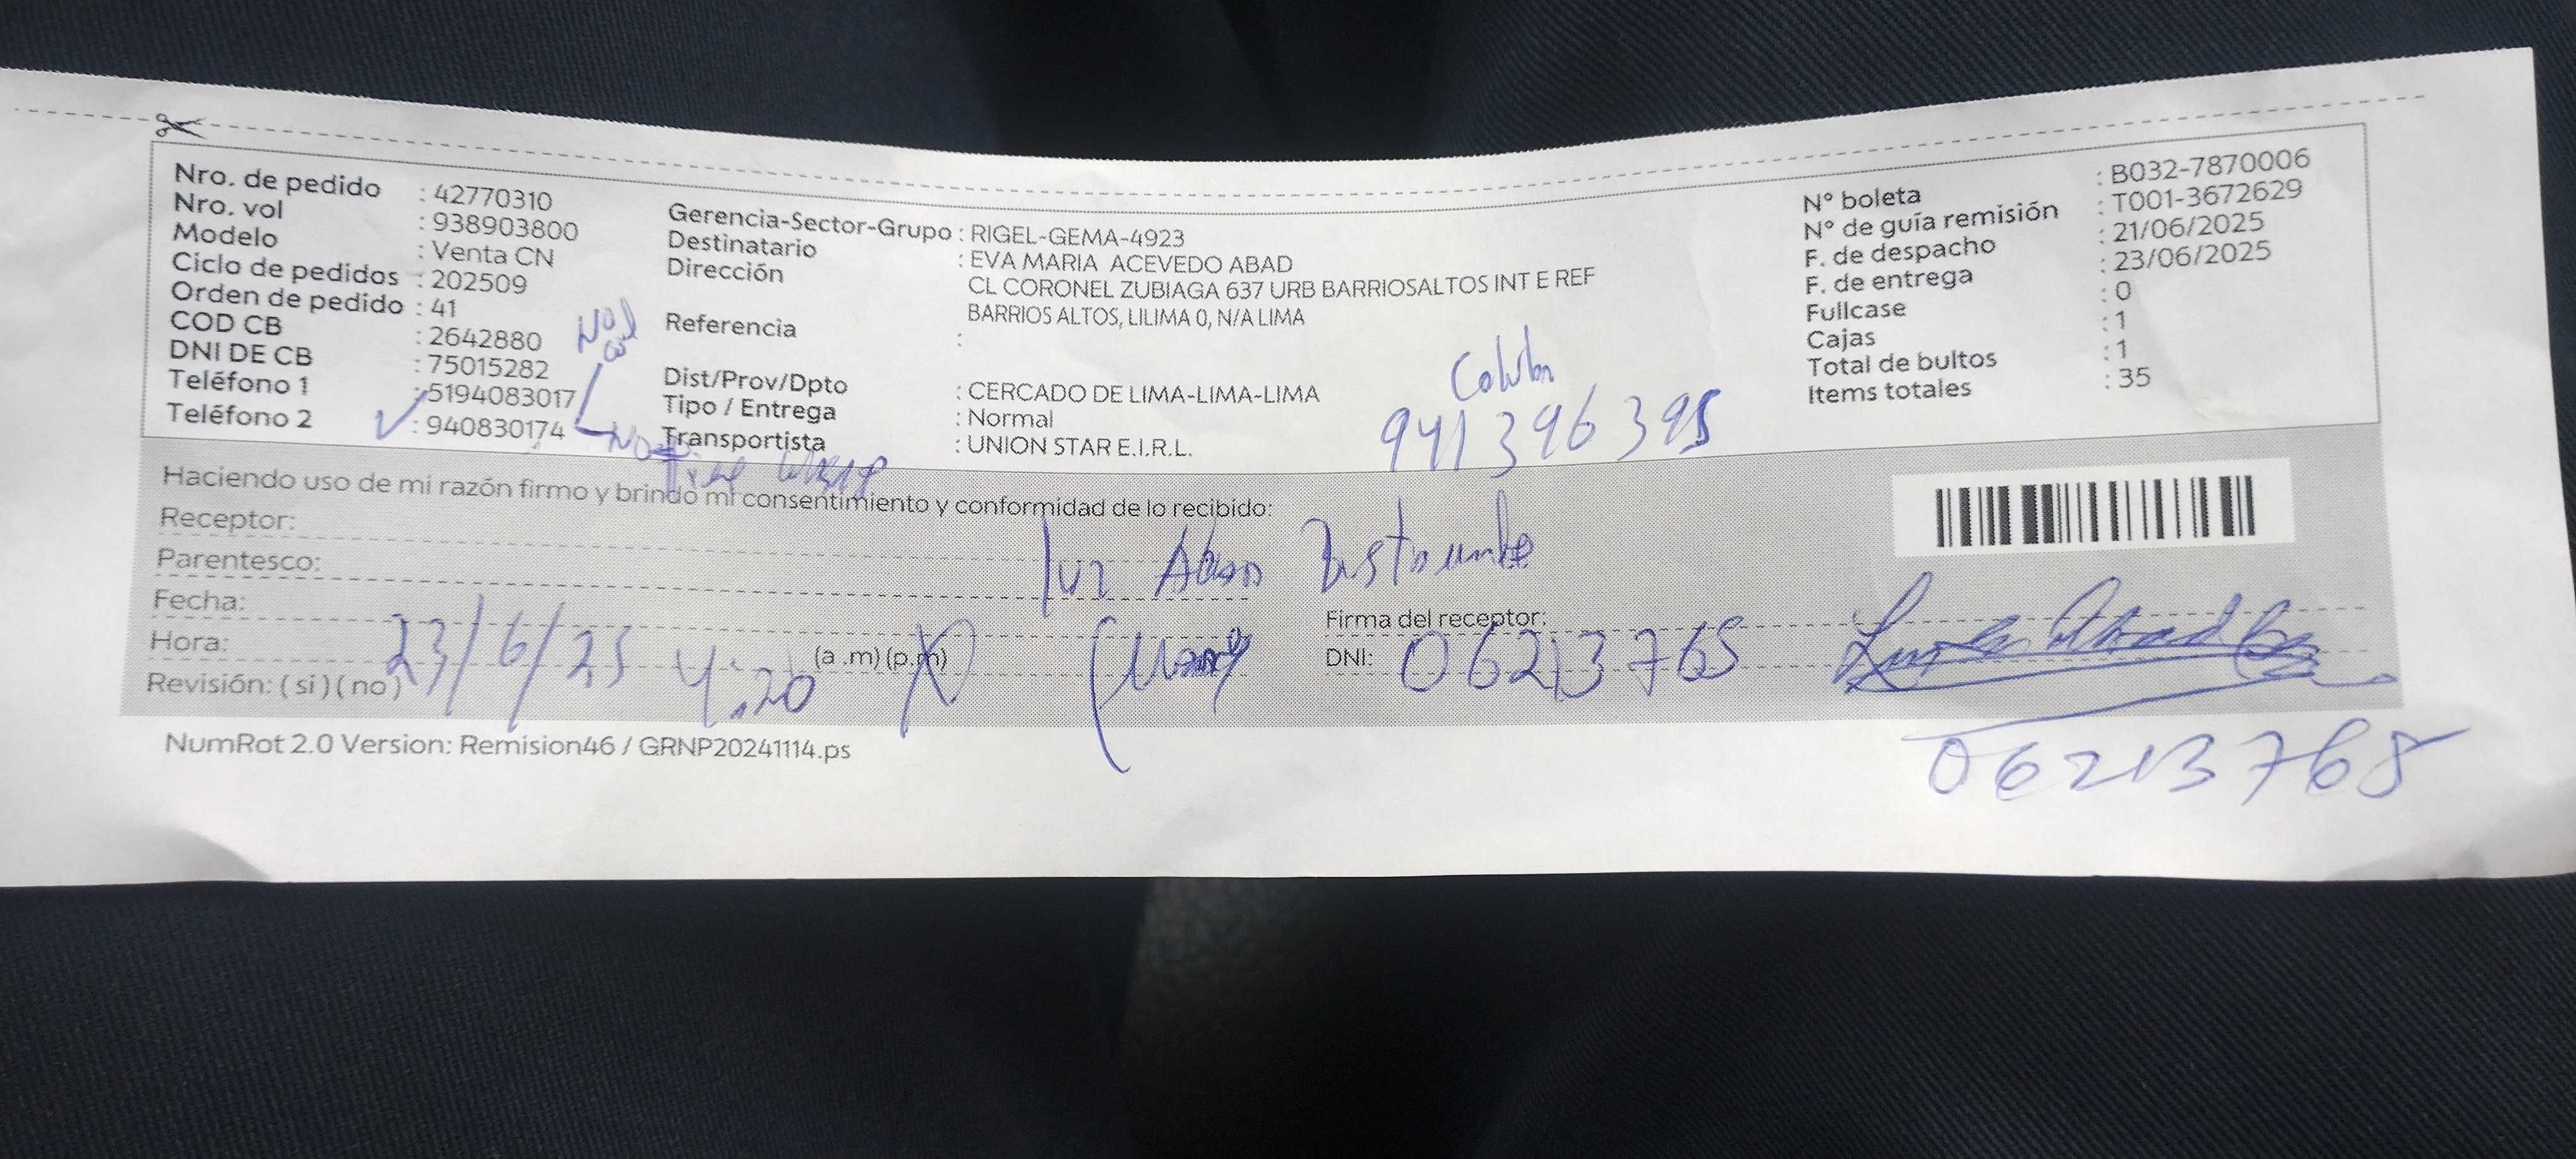 Nro. de pedido : 42770310
Nro. vol : 938903800
Modelo : Venta CN
Ciclo de pedidos : 202509
Orden de pedido : 41
COD CB : 2642880
DNI DE CB : 75015282
Teléfono 1 : 5194083017
Teléfono 2 : 940830174
Gerencia-Sector-Grupo : RIGEL-GEMA-4923
Destinatario : EVA MARIA ACEVEDO ABAD
Dirección : CL CORONEL ZUBIAGA 637 URB BARRIOSALTOS INT E REF
BARRIOS ALTOS, LILIMA 0, N/A LIMA
Referencia :
Dist/Prov/Dpto : CERCADO DE LIMA-LIMA-LIMA
Tipo / Entrega : Normal
Transportista : UNION STAR E.I.R.L.
941396395
N° boleta : B032-7870006
N° de guía remisión : T001-3672629
F. de despacho : 21/06/2025
F. de entrega : 23/06/2025
Fullcase : 0
Cajas : 1
Total de bultos : 1
Items totales : 35
Haciendo uso de mi razón firmo y brindo mi consentimiento y conformidad de lo recibido:
Receptor:
Parentesco:
Fecha: 23/6/25
Hora: 4:20 (a .m) (p.m)
Revisión: ( si ) ( no )
Firma del receptor:
DNI: 06213765
06213765
NumRot 2.0 Version: Remision46 / GRNP20241114.ps